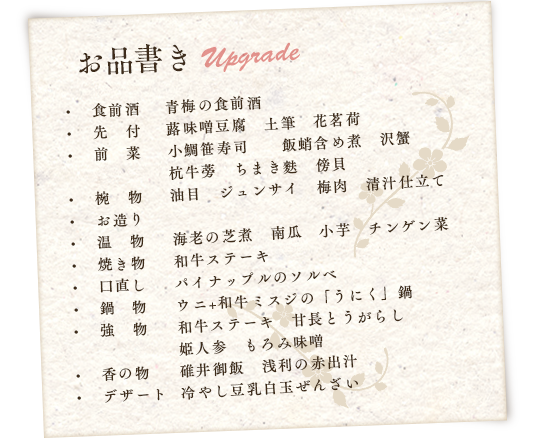 お品書き Upgrade
・ 食前酒 青梅の食前酒
・ 先 付 蕗味噌豆腐 土筆 花茗荷
・ 前 菜 小鯛笹寿司 飯蛸含め煮 沢蟹
杭牛蒡 ちまき麩 傍貝
・ 椀 物 油目 ジュンサイ 梅肉 清汁仕立て
・ お造り
・ 温 物 海老の芝煮 南瓜 小芋 チンゲン菜
・ 焼き物 和牛ステーキ
・ 口直し パイナップルのソルベ
・ 鍋 物 ウニ+和牛ミスジの「うにく」鍋
・ 強 物 和牛ステーキ 甘長とうがらし
姫人参 もろみ味噌
・ 香の物 碓井御飯 浅利の赤出汁
・ デザート 冷やし豆乳白玉ぜんざい